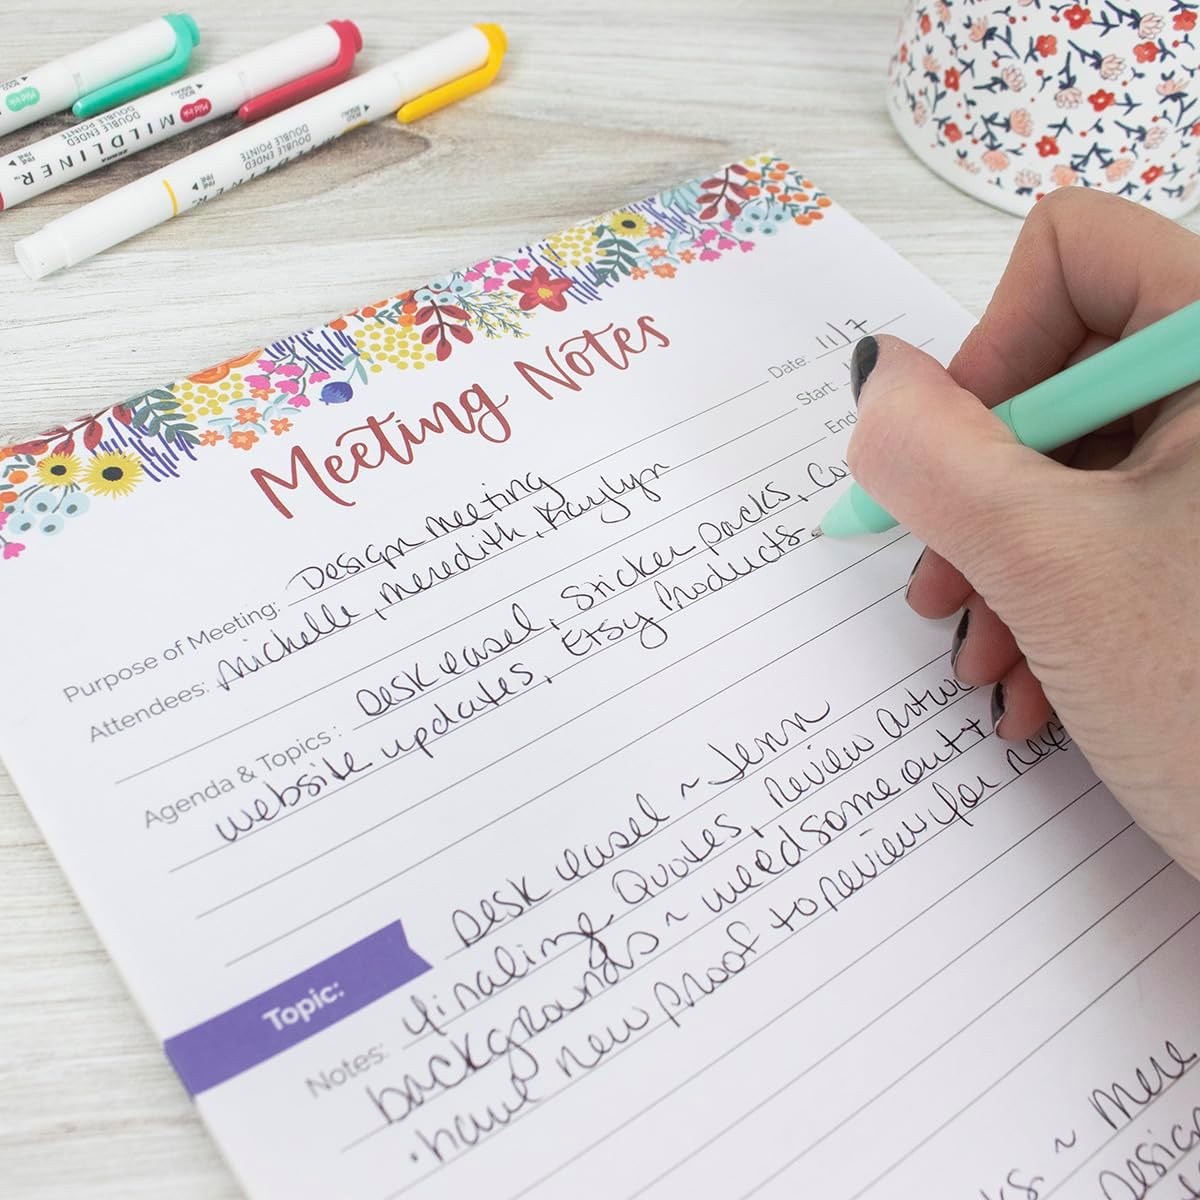 MILDLINER™
ZEBRA
DOUBLE ENDED
DOUBLE POINTE
Mild Ink
FINE
BOLD
DOUBLE ENDED
DOUBLE POINTE
FINE
BOLD
Meeting Notes
Date: 11/7
Start:
End
Purpose of Meeting: Design Meeting
Attendees: Michelle, Meredith, Kaylyn
Agenda & Topics: Desk easel, Sticker packs, Co
website updates, Etsy Products
Topic: Desk easel ~ Jenn
Notes: Finalize Quotes, Review artwo
backgrounds ~ need some out +
· have new proof to review for next
s ~ Mere
Design